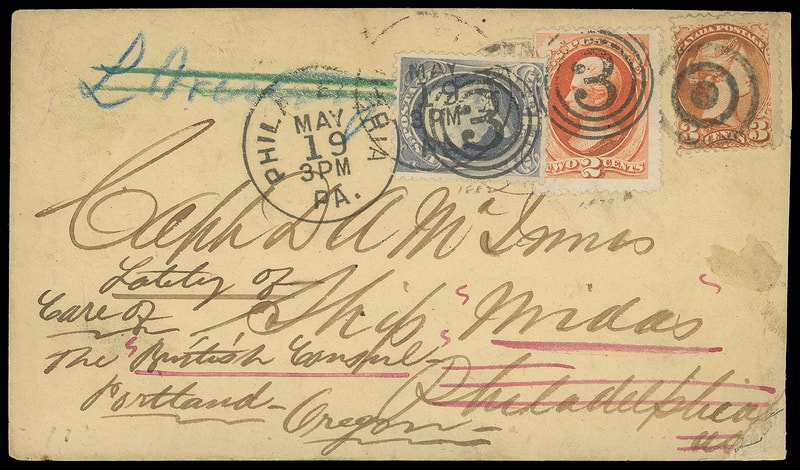 PHILADELPHIA
MAY
19
3PM
PA.
MAY
19
3PM
3
3
TWO 2 CENTS
CANADA POSTAGE
3 CENTS 3
1882
1879
Capt D A McInnis
Lately of
Ship "Midas"
Care of
The "British Consul-
Portland-
Oregon-
Philadelphia